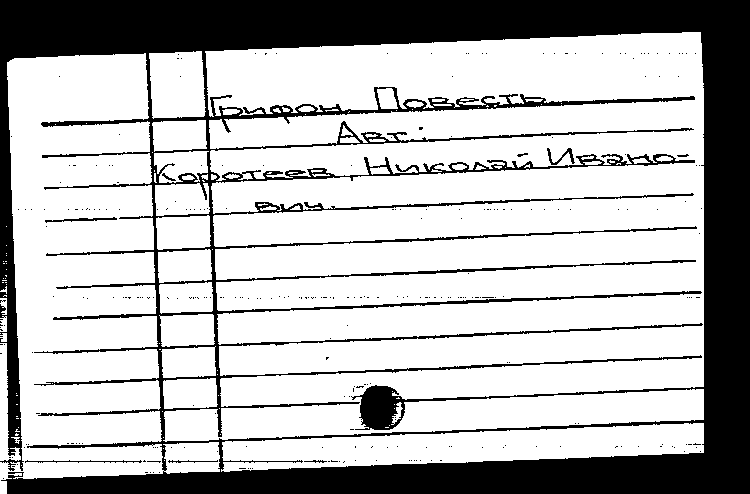 Грифон. Повесть.
Авт.:
Коротеев, Николай Ивано-
вич.